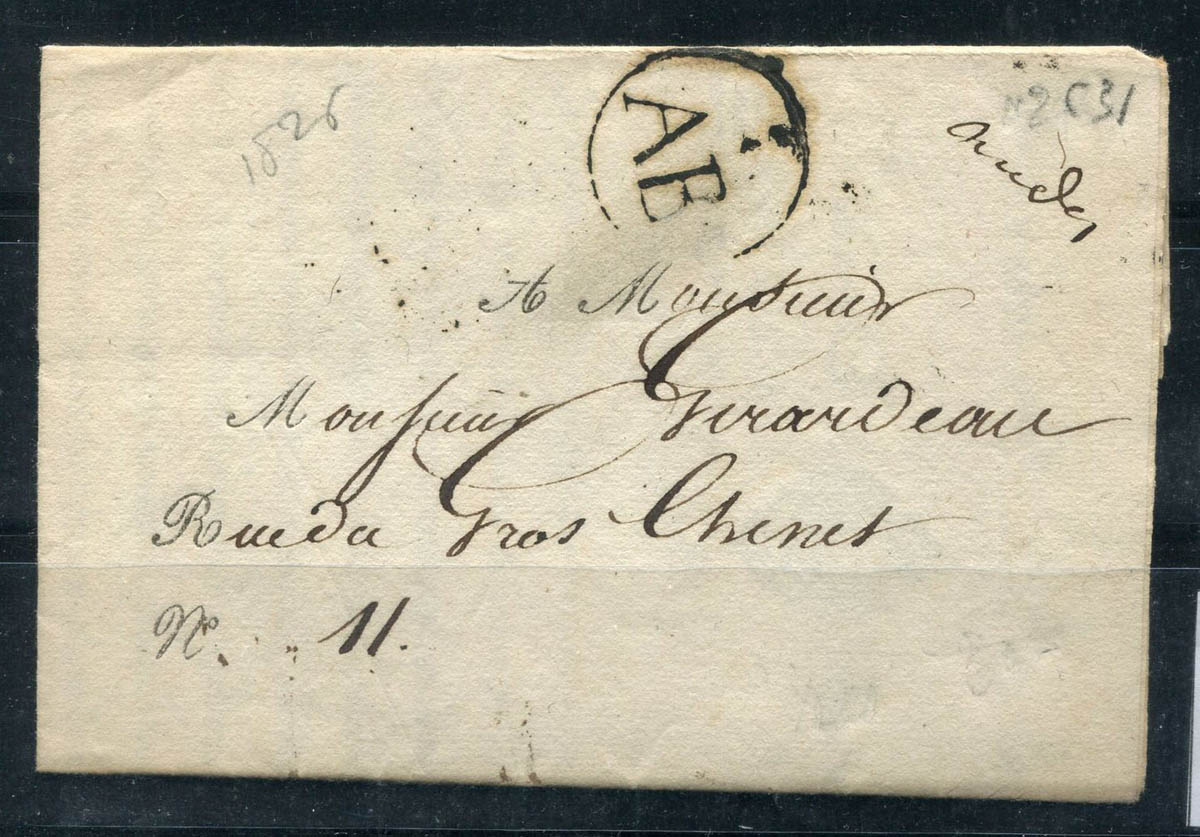 1826
AB
A Monsieur
Monsieur Girardeau
Rue du Gros Chenet
No. 11.